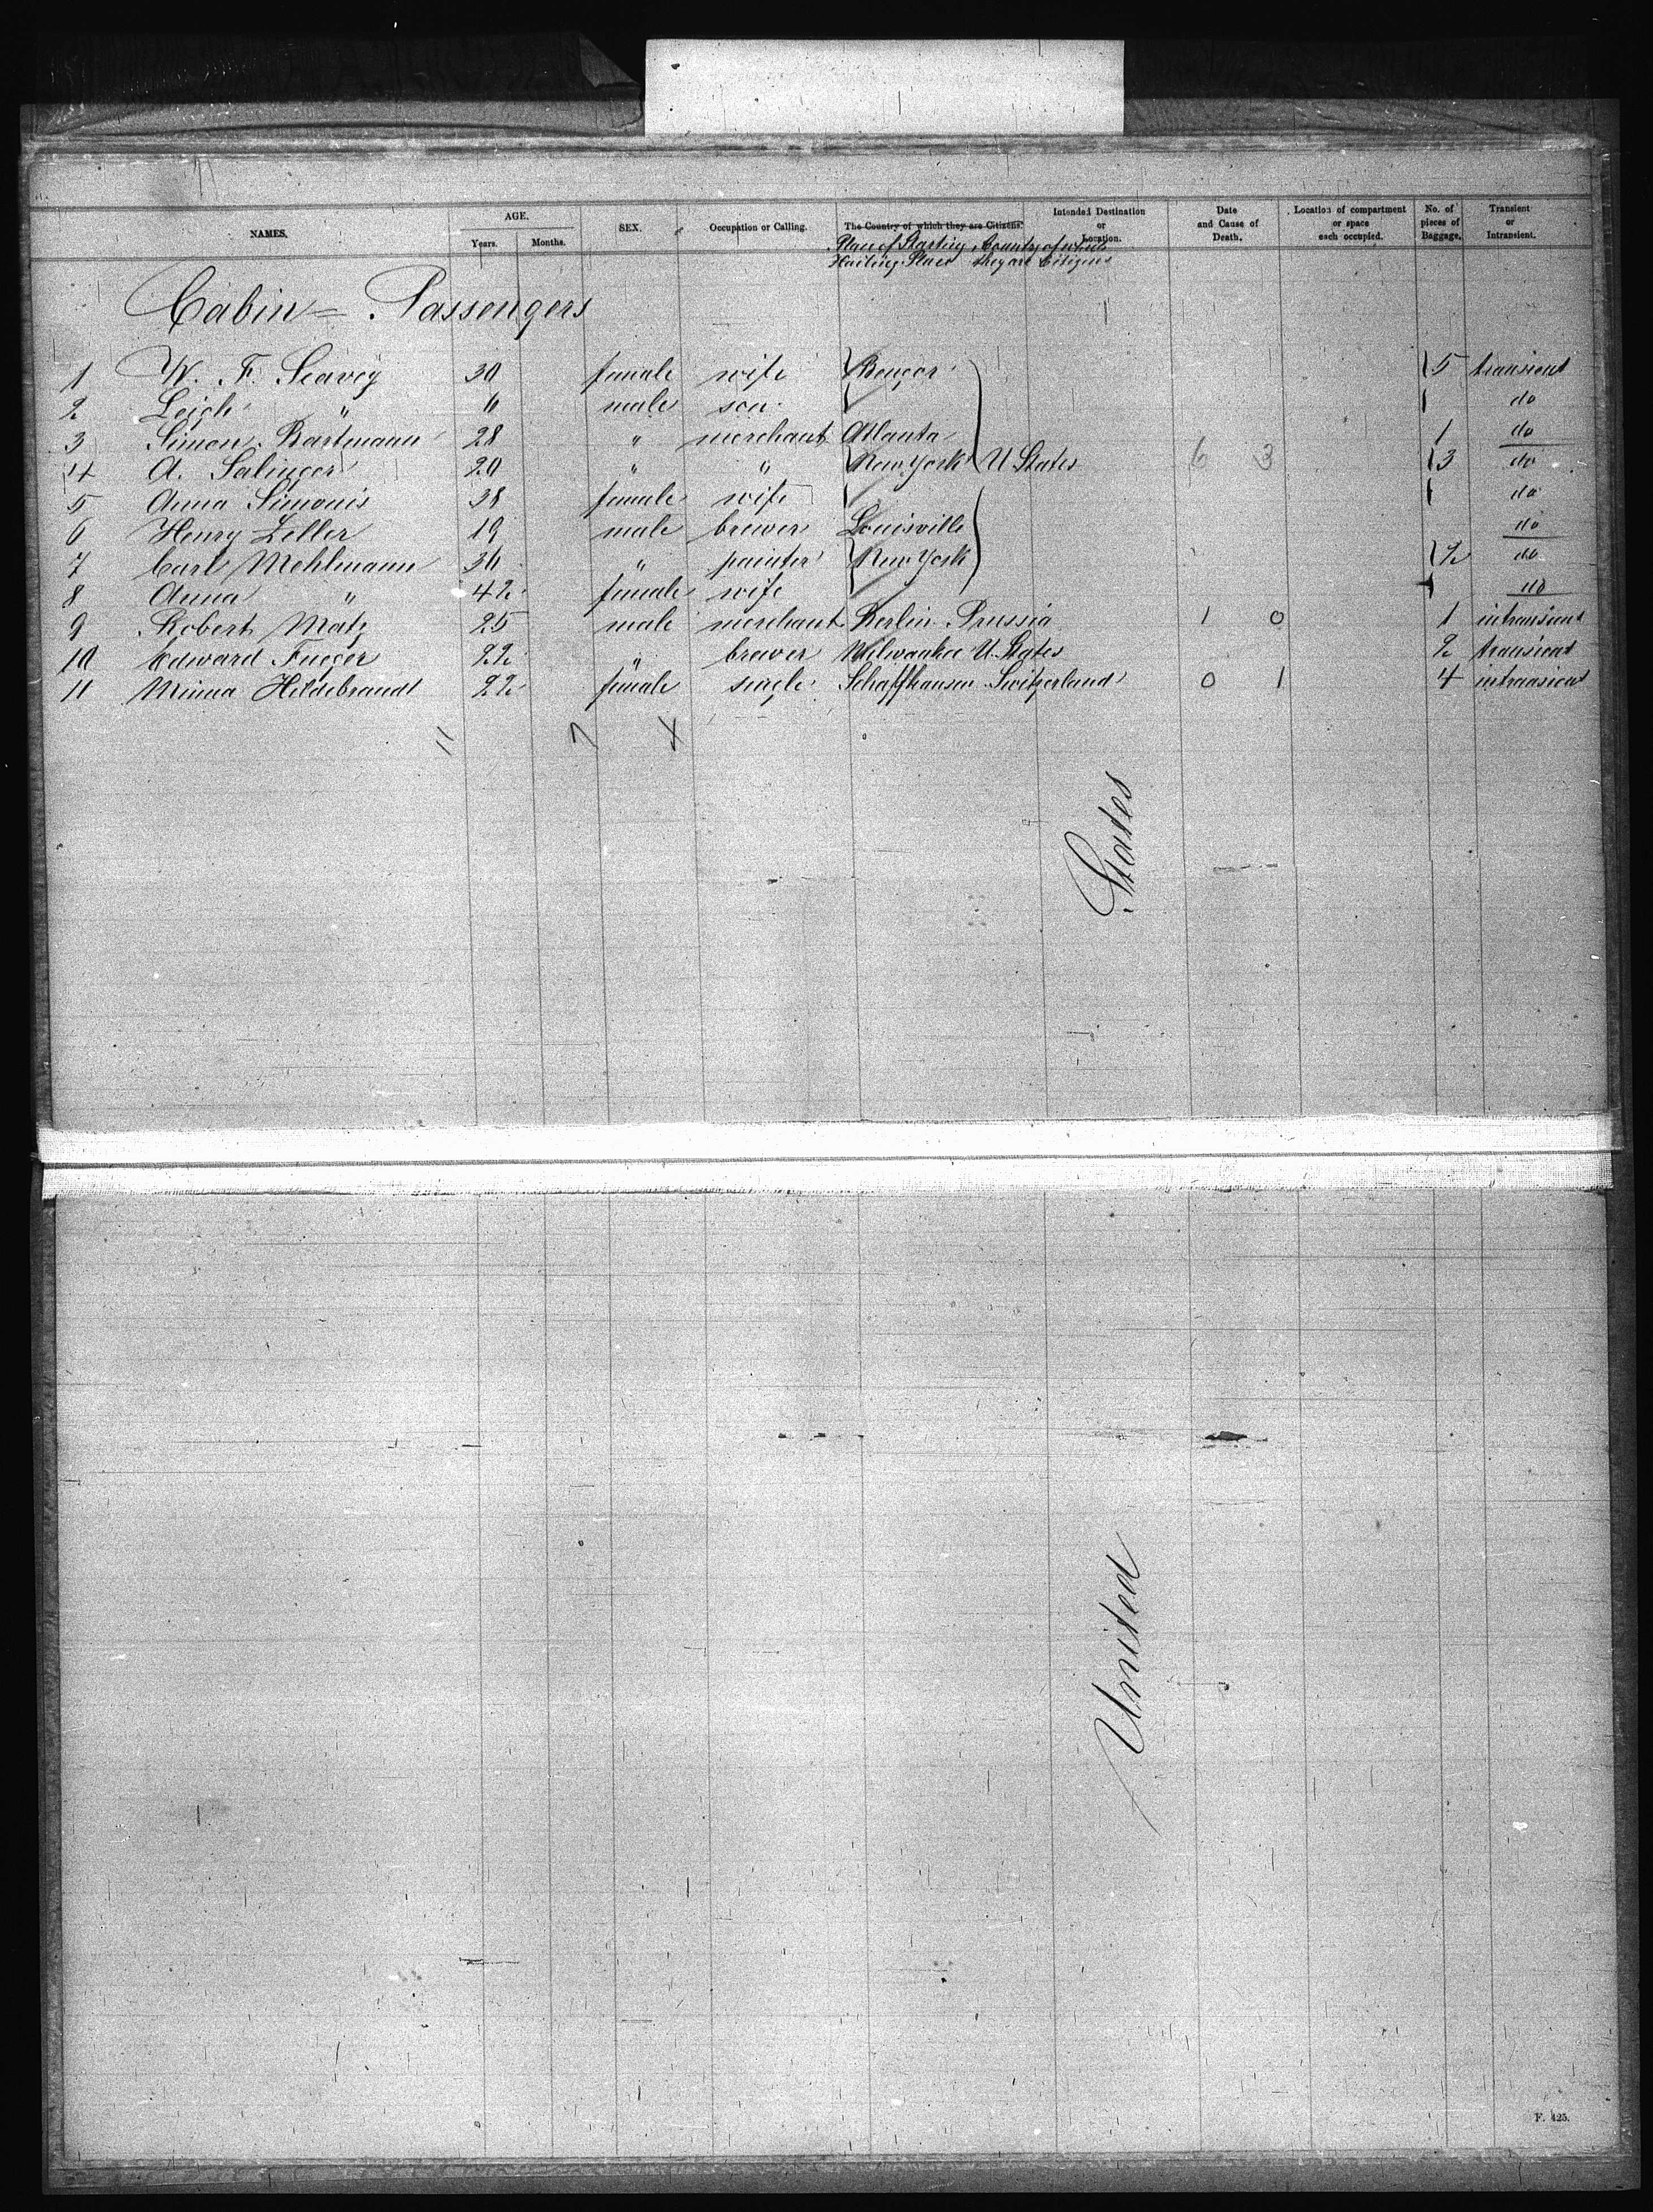 NAMES. AGE. Years. Months. SEX. Occupation or Calling. The Country of which they are Citizens. Intended Destination or Location. Date and Cause of Death. Location of compartment or space each occupied. No. of pieces of Baggage. Transient or Intransient.
Place of Starting Country of which
Hailing Place they are Citizens
Cabin = Passengers
1 W. F. Seavey 30 female wife Bangor 5 transient
2 Leigh " 11 male son do
3 Simon Bartmann 28 " merchant Atlanta 1 do
4 A. Salinger 20 " " New York U States 6 3 3 do
5 Anna Simonis 38 female wife do
6 Henry Zeller 19 male brewer Louisville do
7 Carl Mehlmann 36 " painter New York 2 do
8 Anna " 42 female wife do
9 Robert Matz 25 male merchant Berlin Prussia 1 0 1 intransient
10 Edward Fueger 22 " brewer Milwaukee U. States 2 transient
11 Minna Hildebrandt 22 female single Schaffhausen Switzerland 0 1 4 intransient
11 7 4
United States
F. 425.